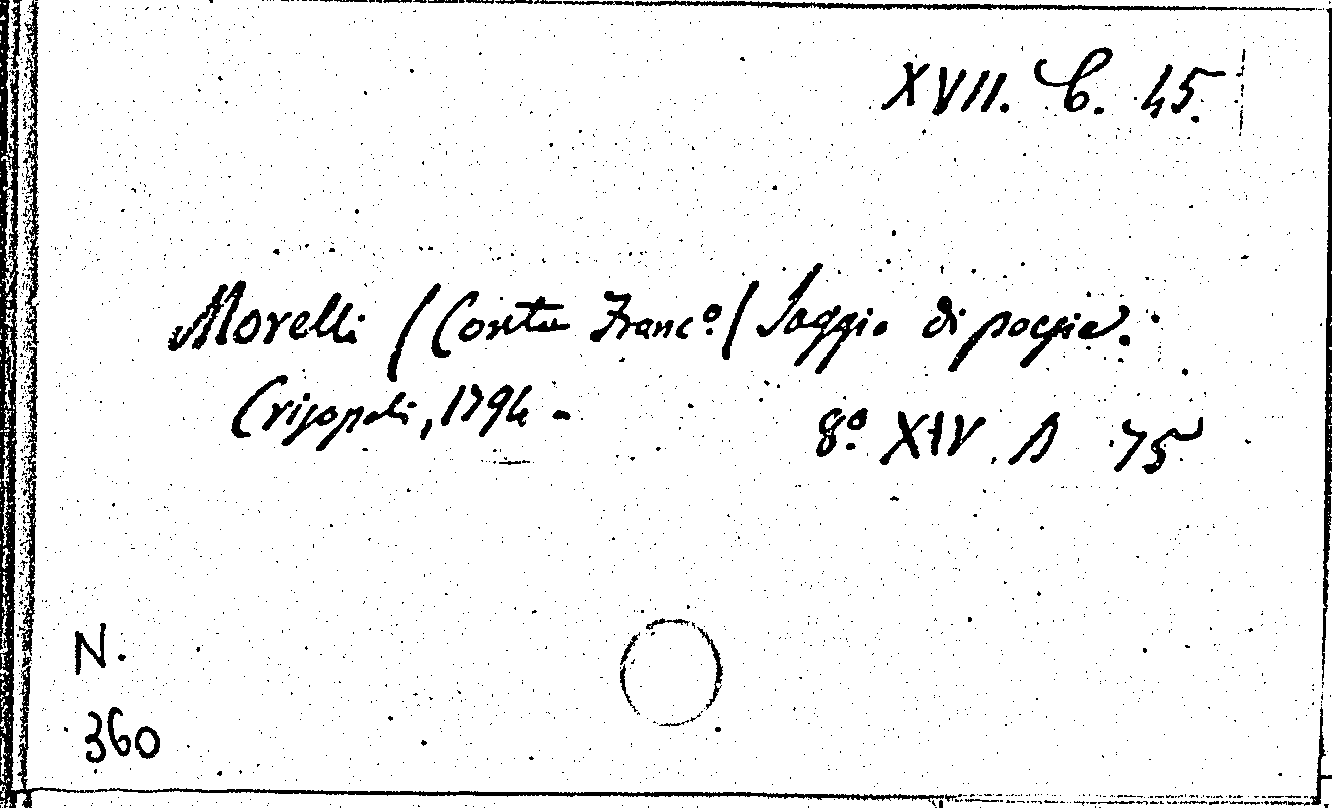 XVII. C. 45.
Morelli (Conte Franc.º) Saggio di poesie.
Crisopoli, 1794 -
8.º XIV. A 75
N.
360